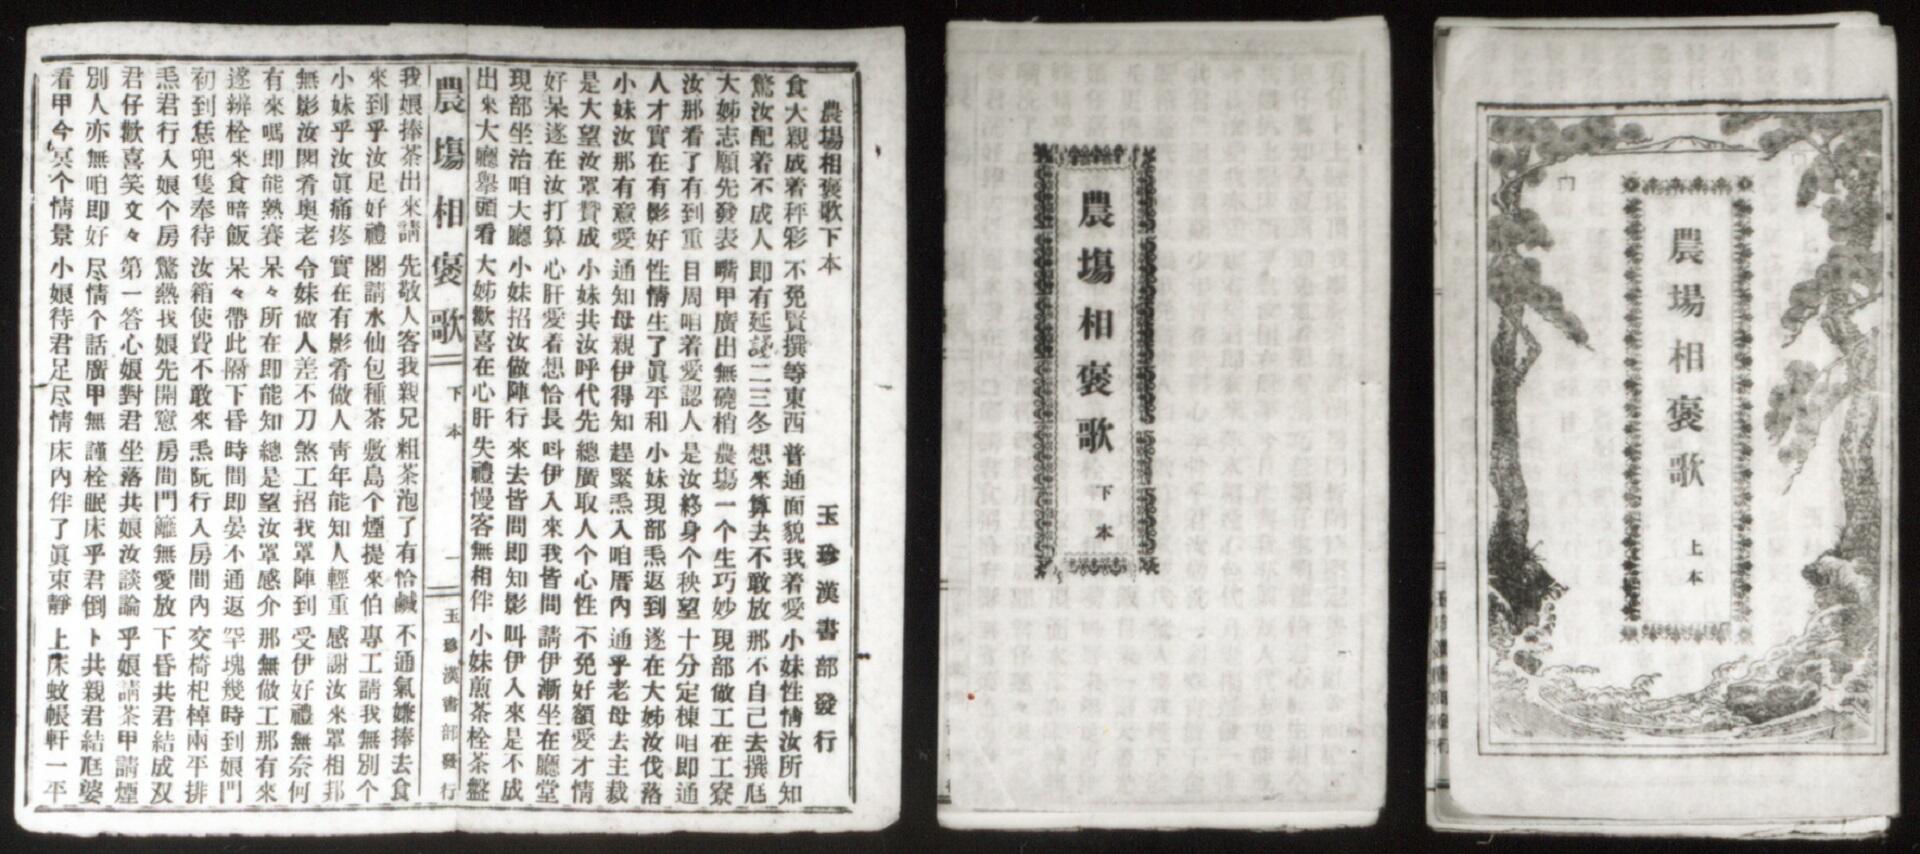 農場相褒歌
上本
農塲相褒歌
下本
農場相褒歌下本 玉珍漢書部發行
食大親戚着秤彩 不免賢撰等東西 普通面貌我着愛 小妹性情汝所知
驚汝配着不成人 即有延 二三冬 想來算去不敢放 那不自己去撰尫
大姊志願先發表 嘴甲廣出無磽梢 農塲一个生巧妙 現部做工在工寮
汝那看了有到重 目周咱着愛認人 是汝終身个秧望 十分定棟咱即通
人才實在有影好 性情生了眞平和 小妹現部𤆬返到 遂在大姊汝伐落
小妹汝那有意愛 通知母親伊得知 趕緊𤆬入咱厝內 通乎老母去主裁
是大望汝罩贊成 小妹共汝呼代先 總廣取人个心性 不免好額愛才情
好呆遂在汝打算 心肝愛看想恰長 叫伊入來我皆問 請伊漸坐在廳堂
現部坐治咱大廳 小妹招汝做陣行 來去皆問即知影 叫伊入來是不成
出來大廳舉頭看 大姊歡喜在心肝 失禮慢客無相伴 小妹煎茶栓茶盤
農塲相褒歌 下本 一 玉珍漢書部發行
我娘捧茶出來請 先敬人客我親兄 粗茶泡了有恰鹹 不通氣嫌捧去食
來到乎汝足好禮 閣請水仙包種茶 敷島个煙提來伯 專工請我無別个
小妹乎汝眞痛疼 實在有影肴做人 靑年能知人輕重 感謝汝來罩相邦
無影汝閑肴奧老 令妹做人差不刀 煞工招我罩陣到 受伊好禮無奈何
有來嗎即能熟賽 呆々所在即能知 總是望汝罩感介 那無做工那有來
遂辨栓來食暗飯 呆々帶此隔下昏 時間即晏不通返 罕塊幾時到娘門
初到恁兜隻奉待 汝箱使費不敢來 𤆬阮行入房間內 交椅杞棹兩平排
𤆬君行入娘个房 驚熱我娘先開窓 房間門籬無愛放 下昏共君結成双
君仔歡喜笑文々 第一答心娘對君 坐落共娘汝談論 乎娘請茶甲請煙
別人亦無咱即好 尽情个話廣甲無 謹栓眠床乎君倒 卜共親君結尫婆
看甲今冥个情景 小娘待君足尽情 床內伴了眞東靜 上床蚊帳軒一平